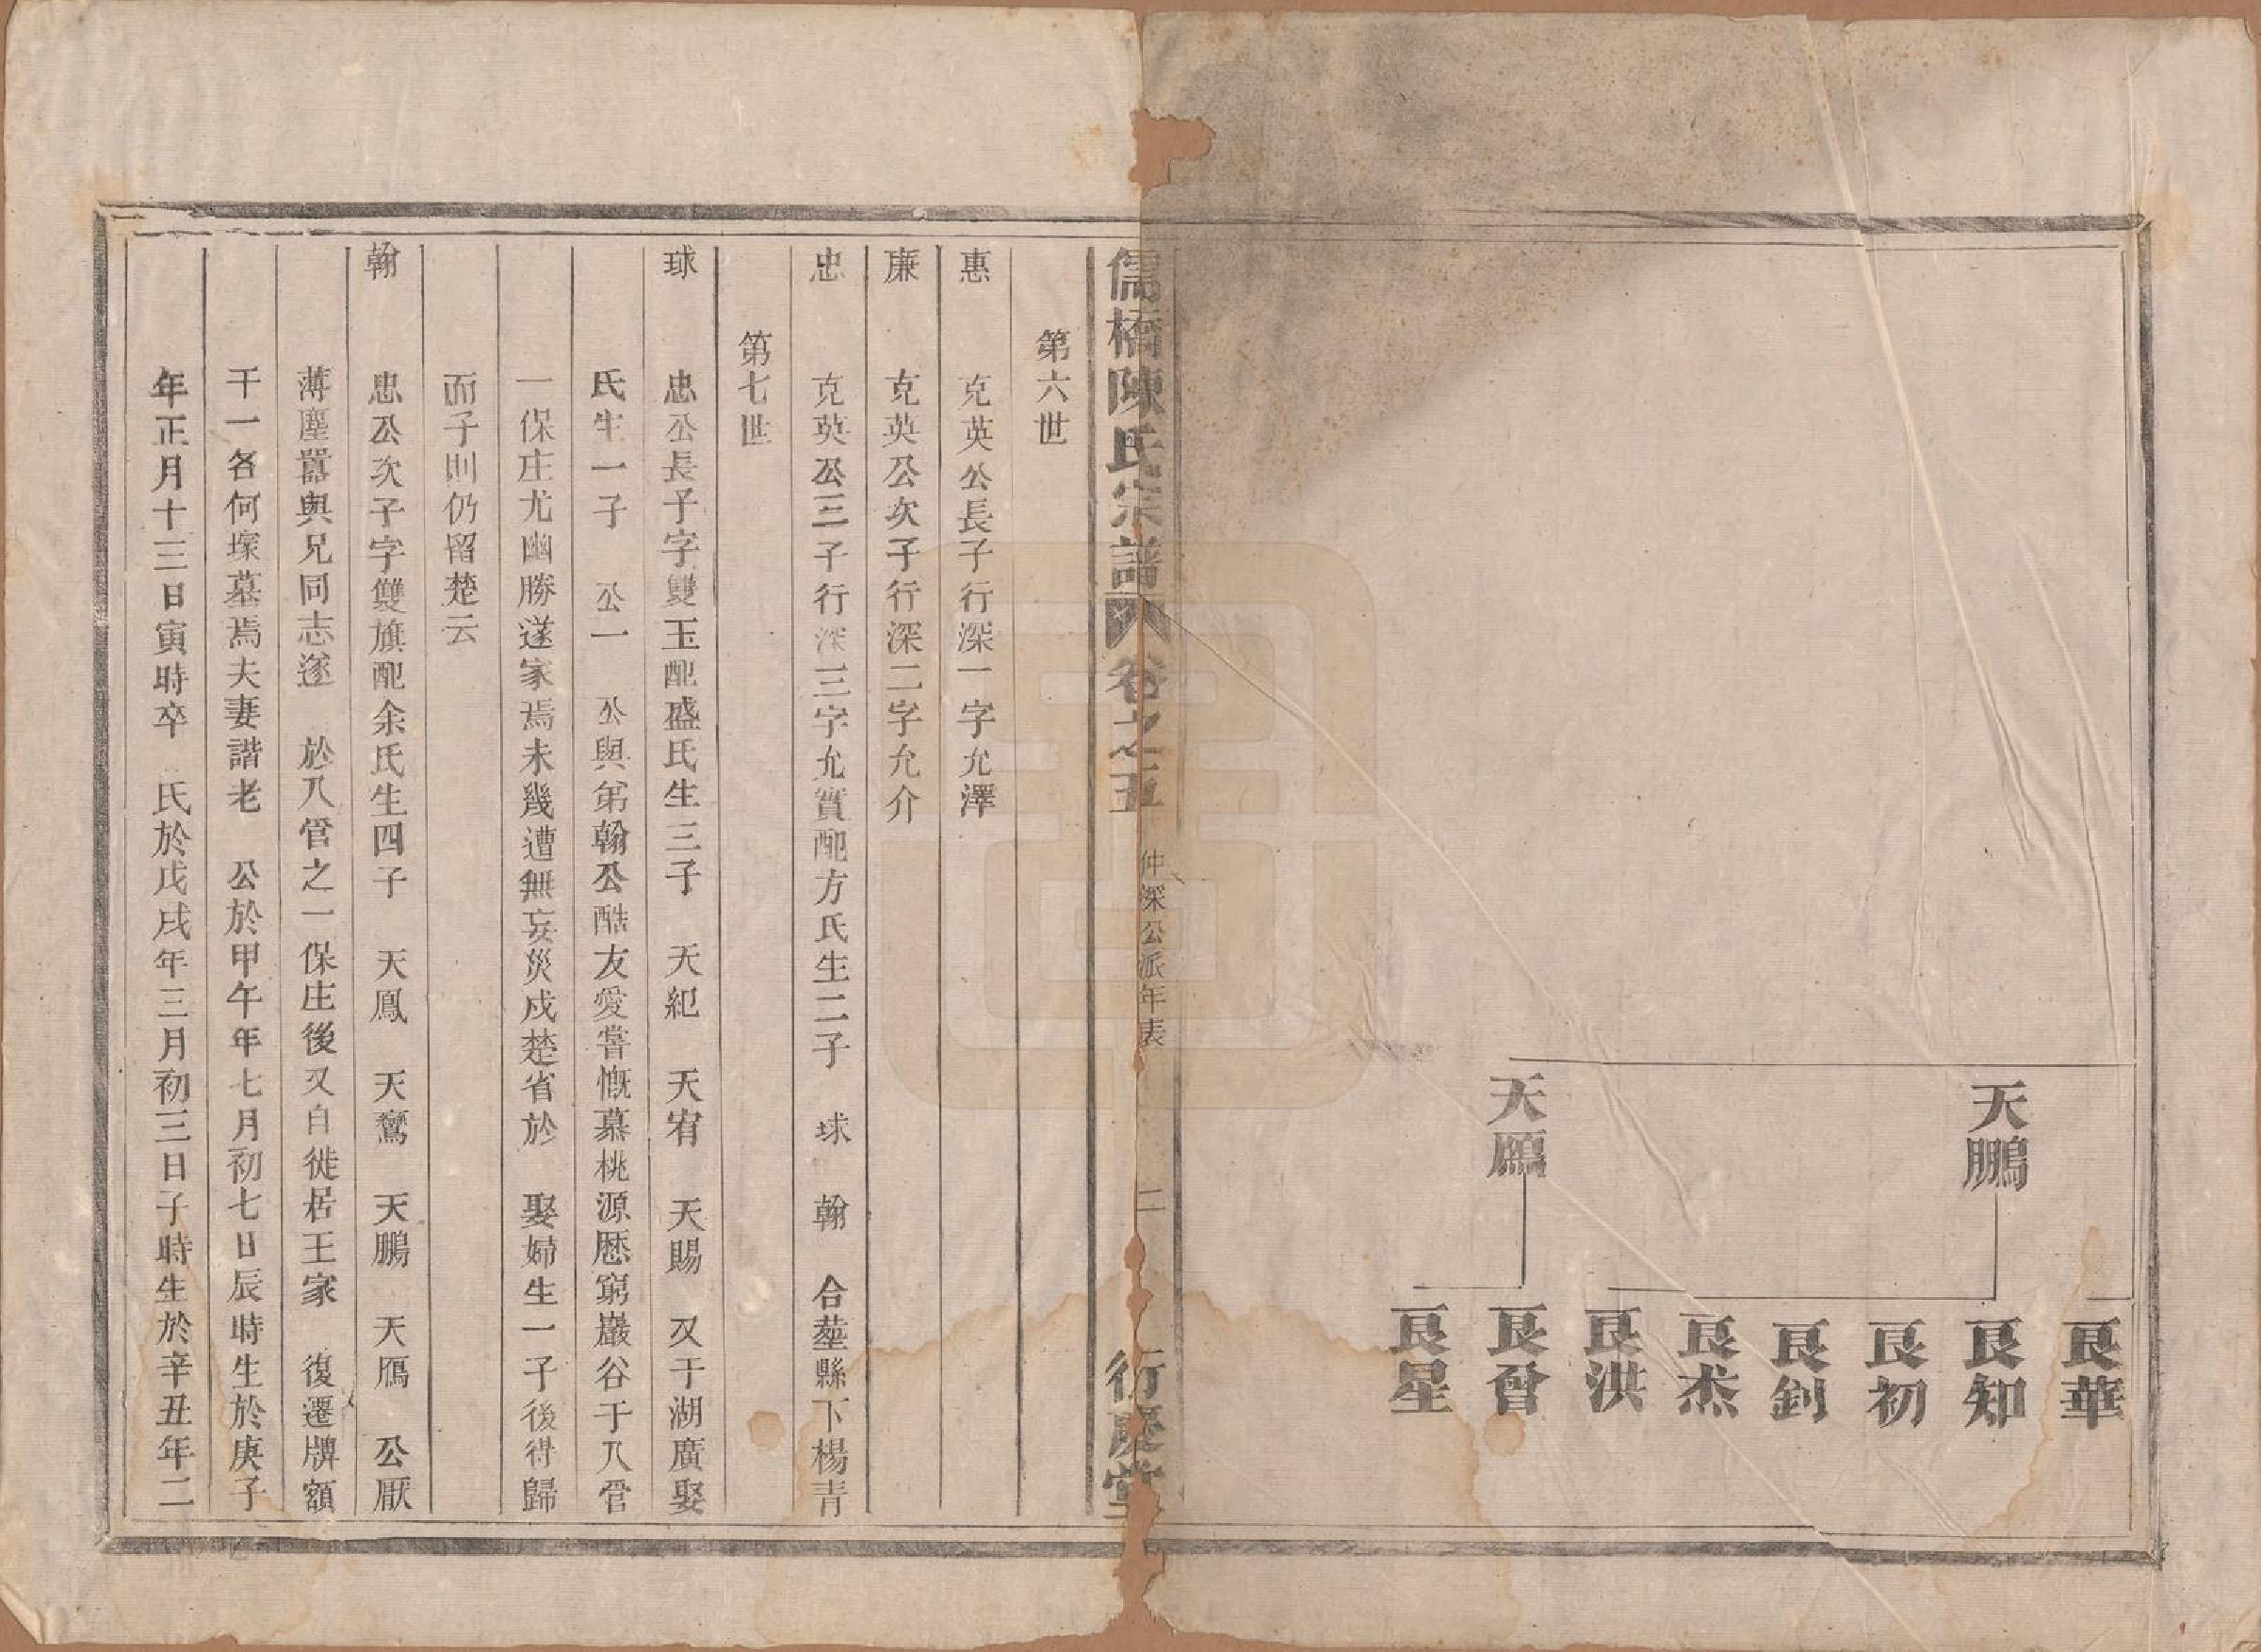 天鵬
天鴈
良華
良知
良初
良釗
良杰
良洪
良晉
良星
儒橋陳氏宗譜 卷之五 仲深公派年表 二 衍慶堂
第六世
惠 克英公長子行深一字允澤
廉 克英公次子行深二字允介
忠 克英公三子行深三字允實配方氏生二子 球 翰 合塟縣下楊青
第七世
球 忠公長子字雙玉配盛氏生三子 天紀 天宥 天賜 又于湖廣娶
氏生一子 公一 公與弟翰公酷友愛嘗慨慕桃源歷窮巖谷于八管
一保庄尤幽勝遂家焉未幾遭無妄災戍楚省於 娶婦生一子後得歸
而子則仍留楚云
翰 忠公次子字雙旗配余氏生四子 天鳳 天鶱 天鵬 天鴈 公厭
薄塵囂與兄同志遂 於八管之一保庄後又自徙居王家 復遷牌額
干一各何塚墓焉夫妻諧老 公於甲午年七月初七日辰時生於庚子
年正月十三日寅時卒 氏於戊戌年三月初三日子時生於辛丑年二